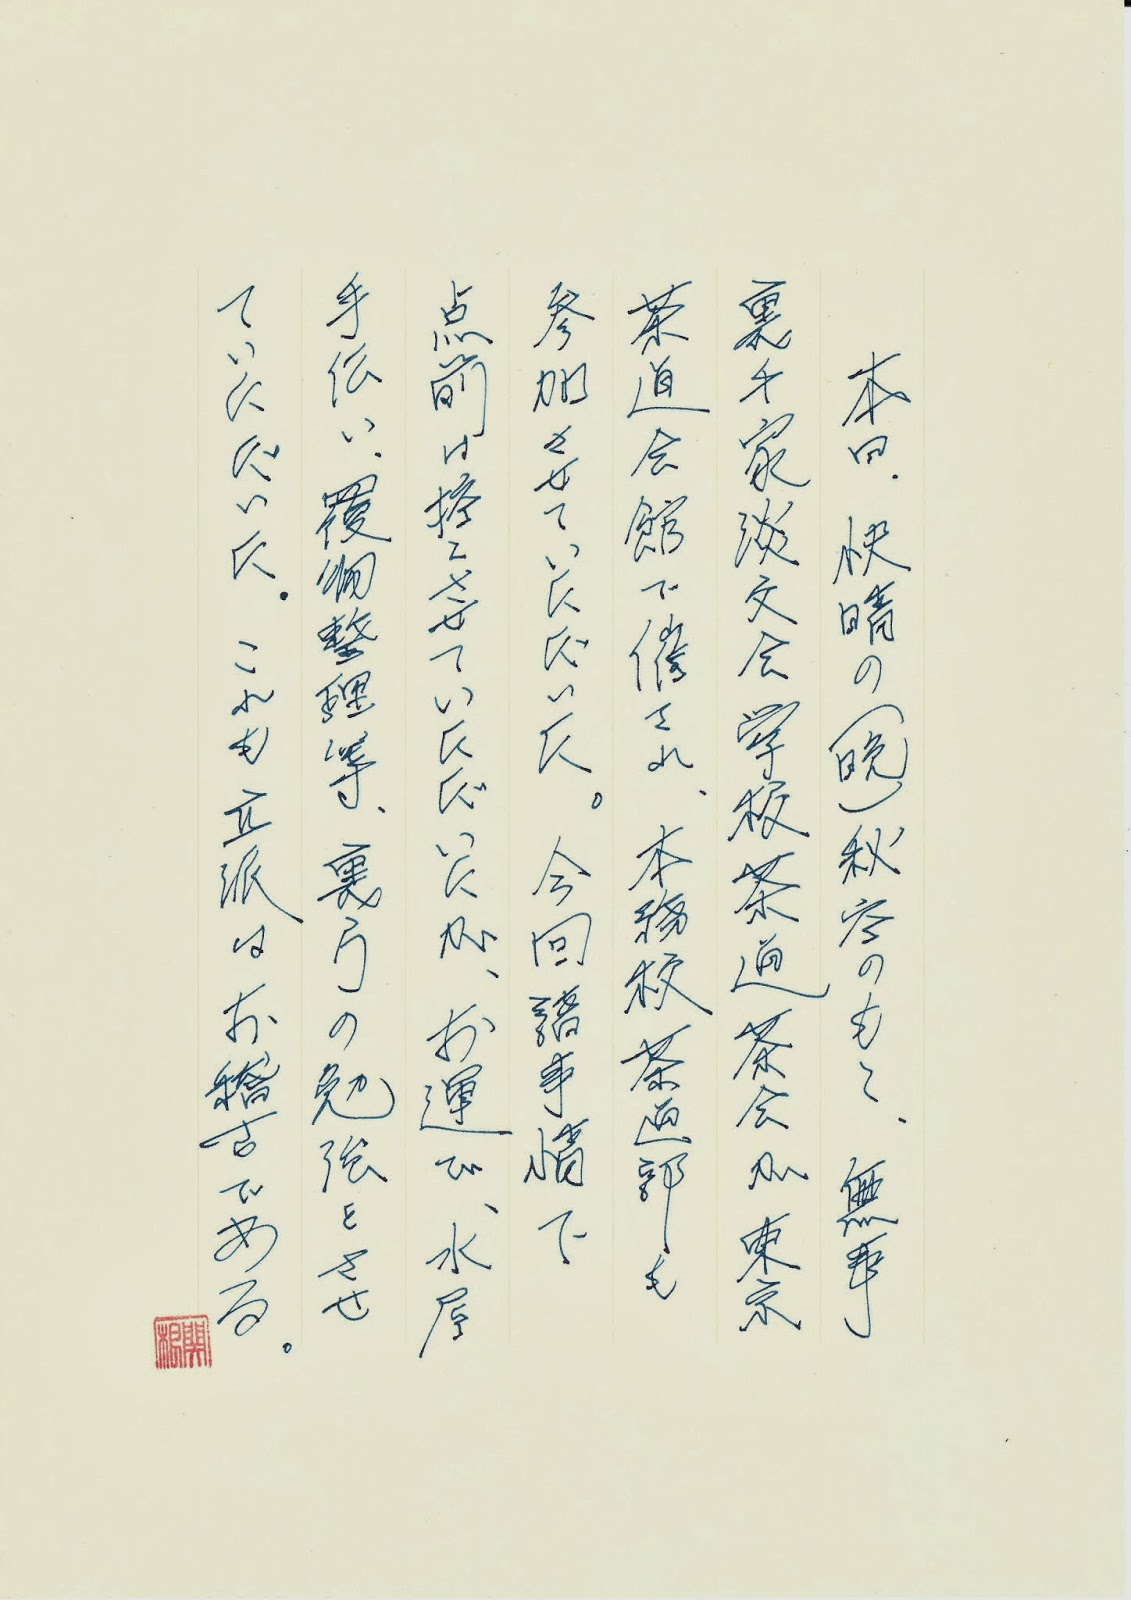 本日、快晴の(晩)秋空のもと、無事
裏千家淡交会学校茶道茶会が東京
茶道会館で催され、本務校茶道部も
参加させていただいた。今回諸事情で
点前は控えさせていただいたが、お運びで、水屋
手伝い、履物整理等、裏方の勉強をさせ
ていただいた。これも立派はお稽古である。
関根